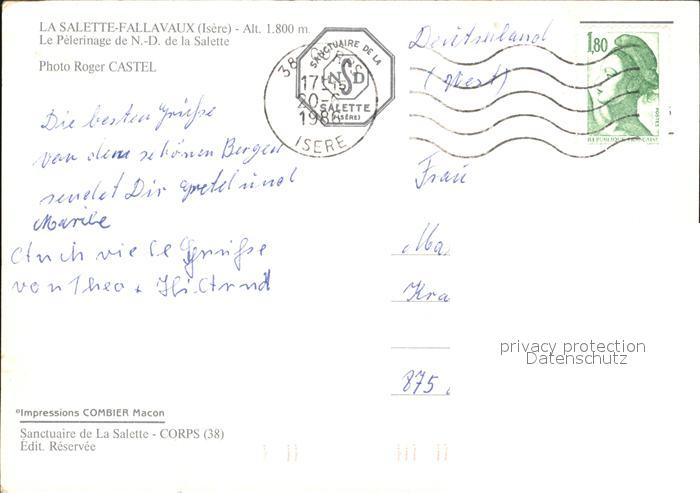 LA SALETTE-FALLAVAUX (Isère) - Alt. 1.800 m.
Le Pèlerinage de N.-D. de la Salette
Photo Roger CASTEL
SANCTUAIRE DE LA
NSD
SALETTE
(ISÈRE)
38
17H
20-
198
ISERE
1,80
POSTES
REPUBLIQUE FRANÇAISE
Deutschland
(West)
Die besten Grüße
von dem schönen Bergen
sendet Dir Gretel und
Marile
Auch viele Grüße
von Theo + Hiltrud
Frau
Ma
Kra
875
privacy protection
Datenschutz
Impressions COMBIER Macon
Sanctuaire de La Salette - CORPS (38)
Édit. Réservée